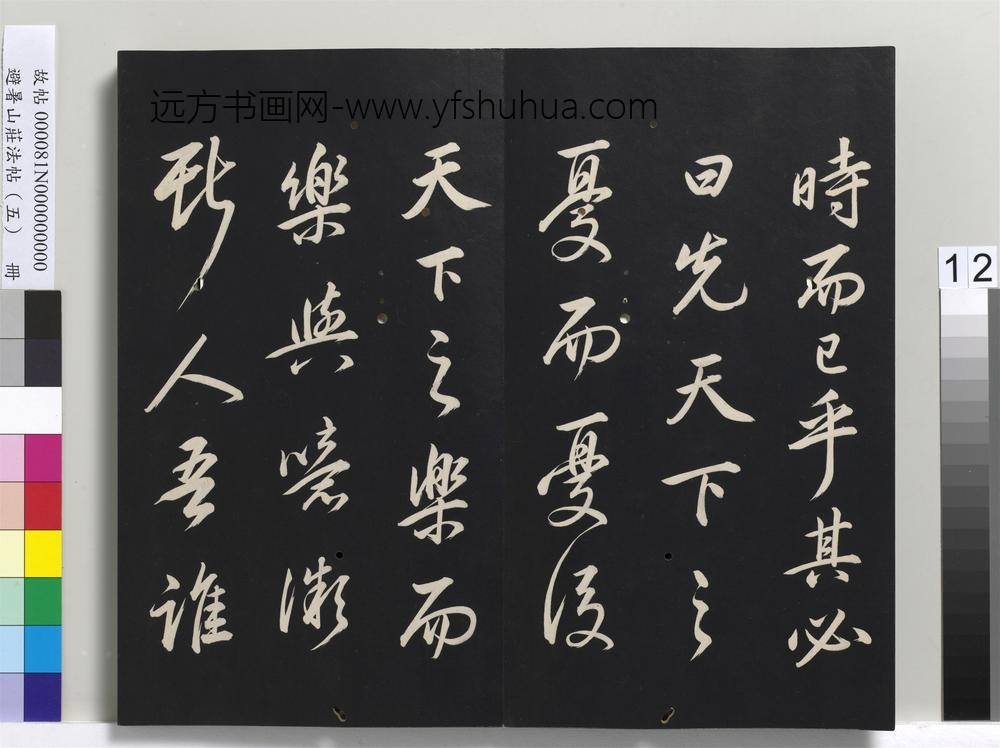 远方书画网-www.yfshuhua.com
時而已乎其必
曰先天下之
憂而憂後
天下之樂而
樂與噫微
斯人吾誰
故帖 000081N000000000
避暑山莊法帖（五） 冊
12